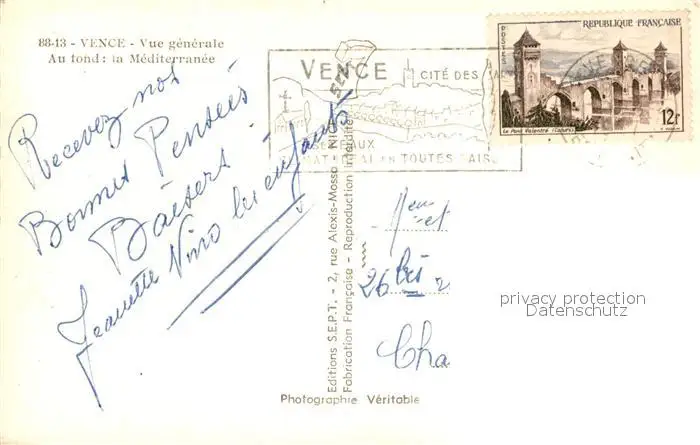 88-13 - VENCE - Vue générale
Au fond : la Méditerranée
Recevez nos
Bonnes Pensées
Baisers
Jeanette Nino les enfants
Editions S.E.P.T. - 2, rue Alexis-Mosso
Fabrication Française - Reproduction interdite
Photographie Véritable
VENCE
CITÉ DES
EN TOUTES
REPUBLIQUE FRANÇAISE
POSTES
Le Pont Valentré (Cahors)
12f
et
26 bis
Cha
privacy protection
Datenschutz